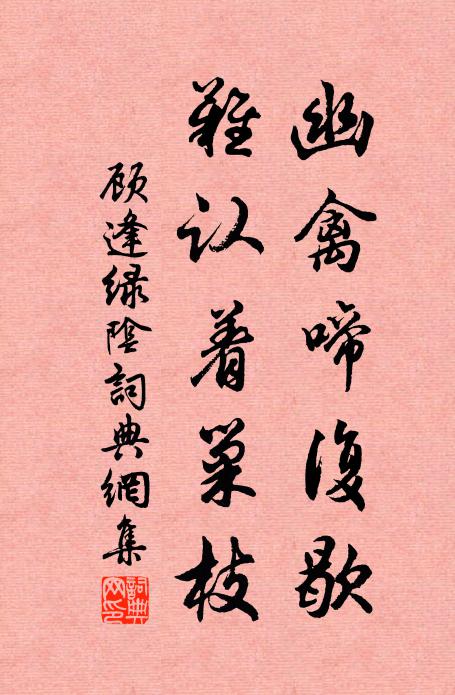 幽禽啼復歇
難认着巢枝
顾逢绿陰詞典網集
詞典网印